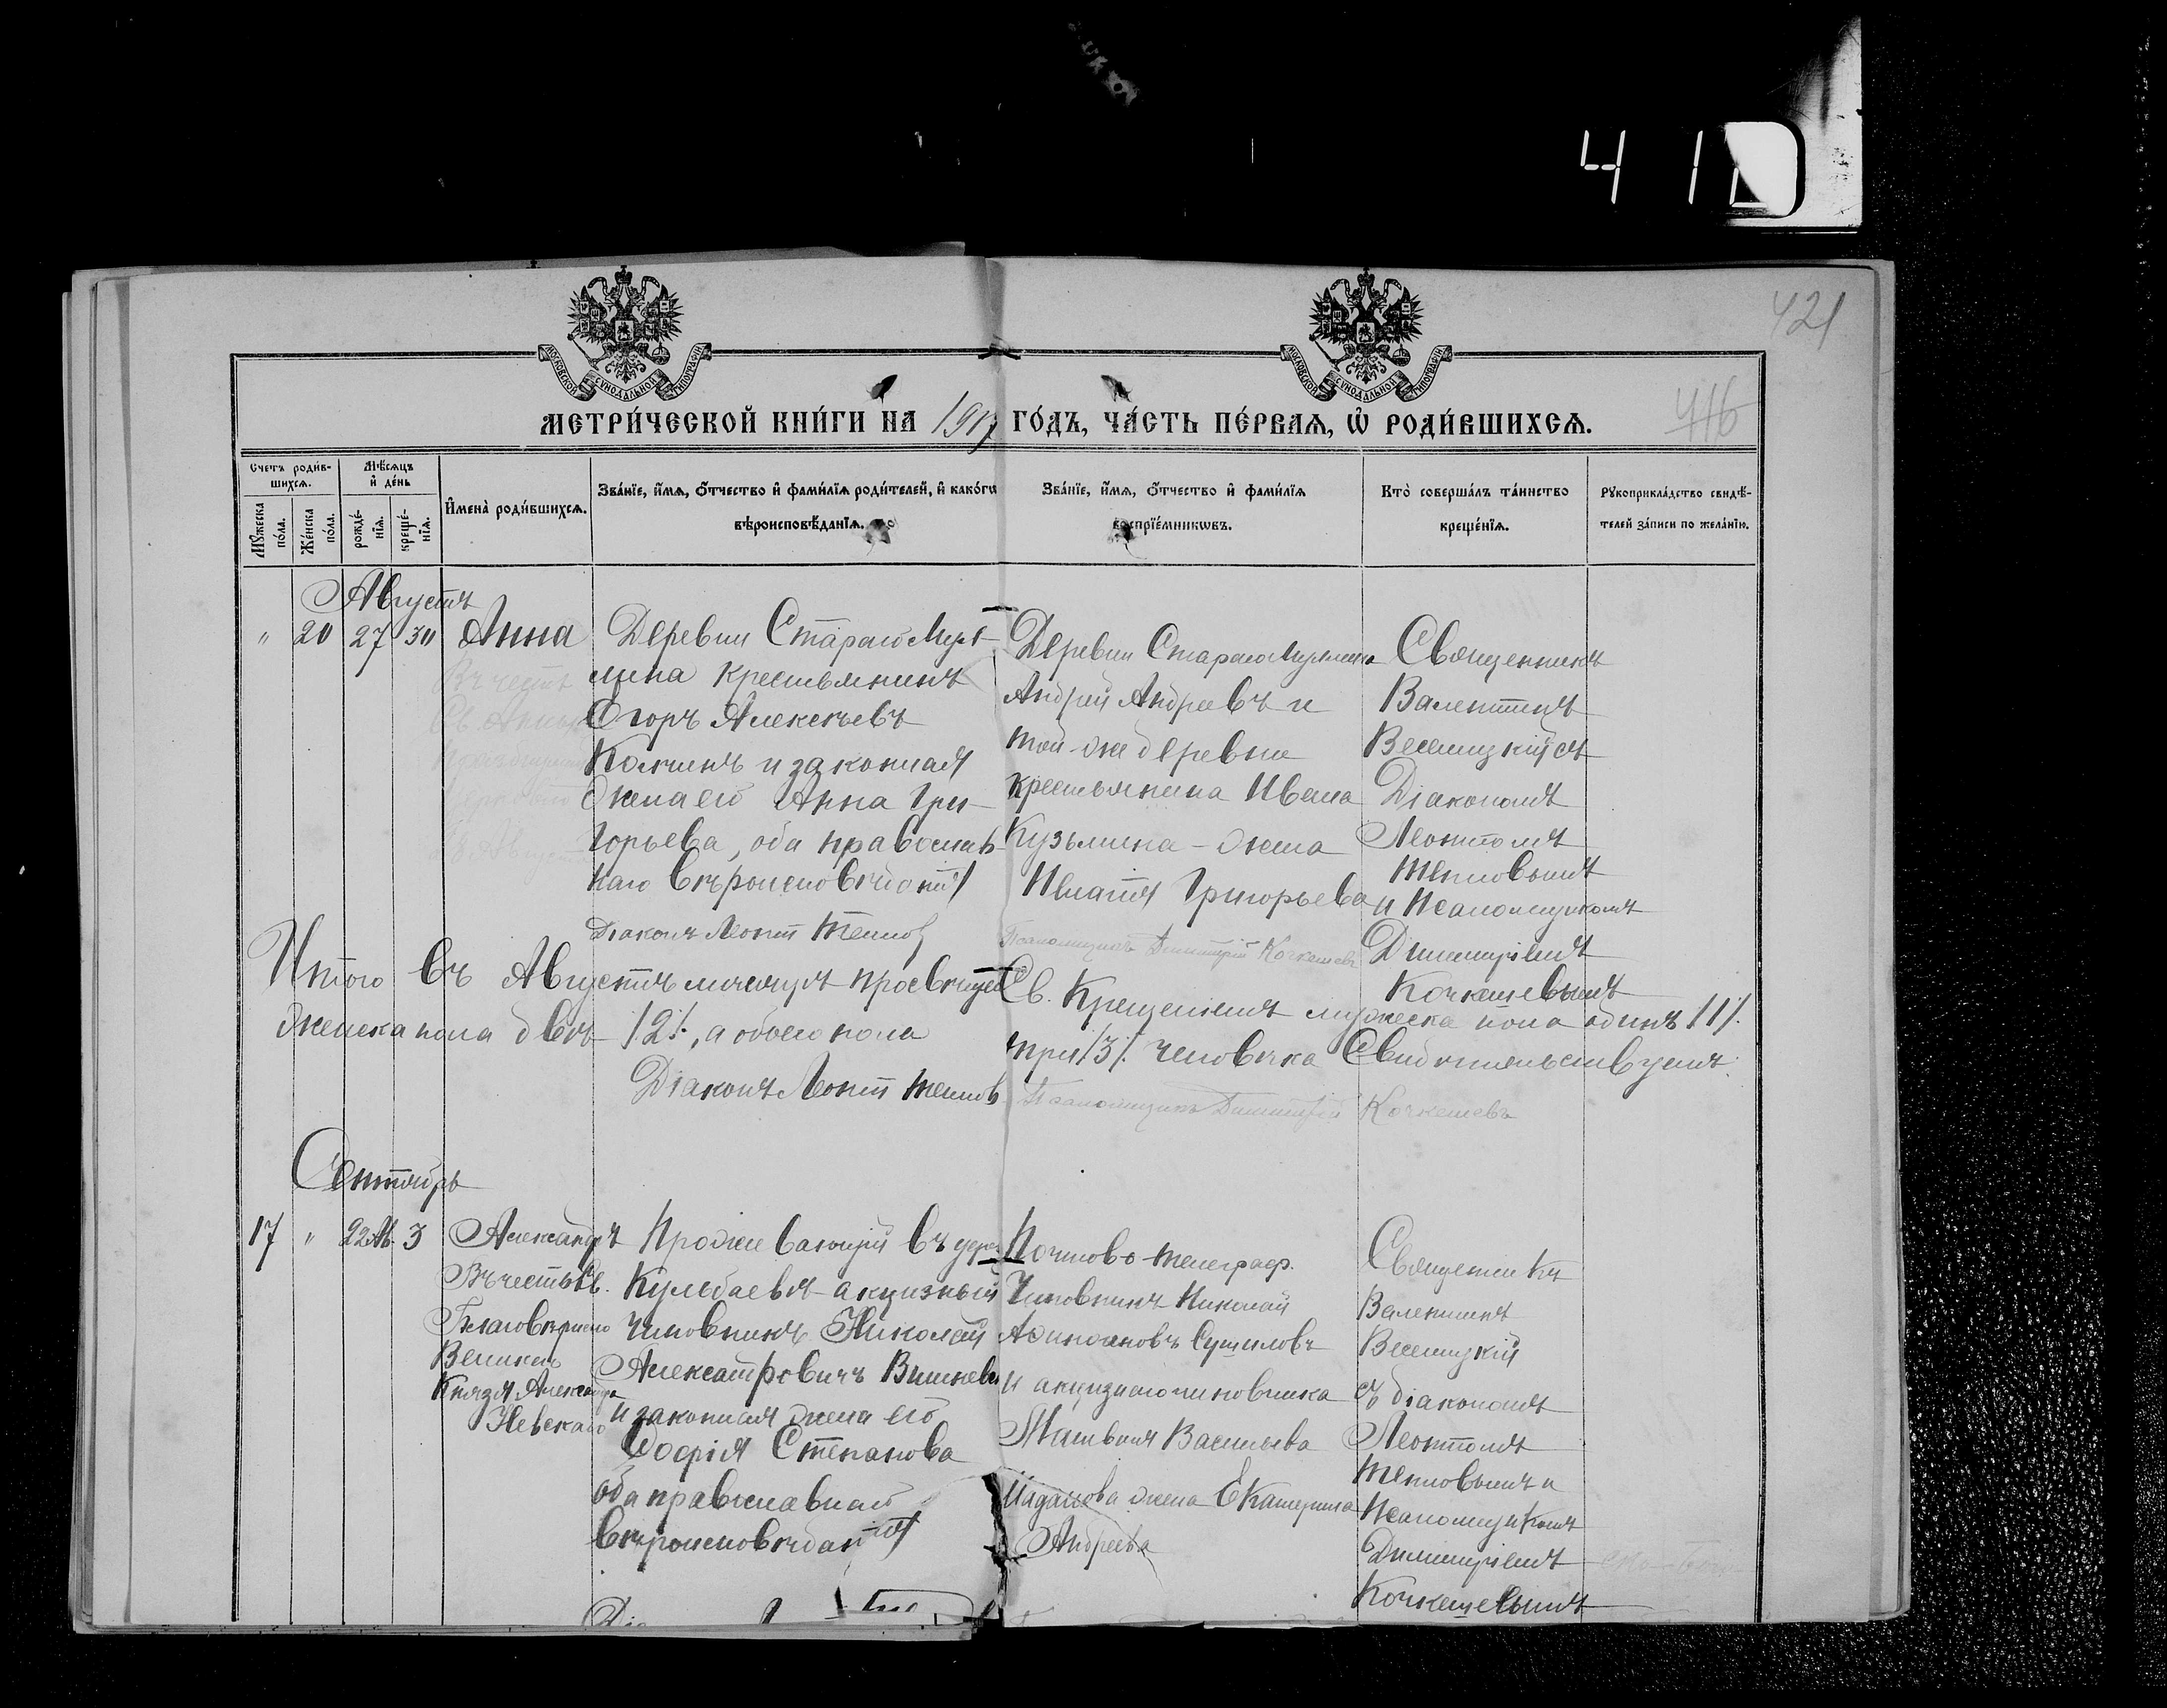 410
421
416
МОСКОВСКОЙ СѴНОДАЛЬНОЙ ТИПОГРАФІИ
МОСКОВСКОЙ СѴНОДАЛЬНОЙ ТИПОГРАФІИ
МЕТРИ́ЧЕСКОЙ КНИ́ГИ НА 1907 ГО́ДЪ, ЧА́СТЬ ПЕ́РВАѦ, Ѡ҆ РОДИ́ВШИХСѦ.
Счетъ роди́вшихсѧ.
Му́жеска по́ла.
Же́нска по́ла.
Мѣ́сѧцъ и҆ де́нь
рожде́нїѧ.
креще́нїѧ.
И҆мена̀ роди́вшихсѧ.
Зва́нїе, и҆́мѧ, ѻ҆́тчество и҆ фами́лїѧ роди́телей, и҆ како́гѡ
вѣроисповѣ́данїѧ.
Зва́нїе, и҆́мѧ, ѻ҆́тчество и҆ фами́лїѧ
воспрїе́мникѡвъ.
Кто̀ соверша́лъ та́инство
креще́нїѧ.
Рꙋкоприкла́дство свидѣ́-
телей за́писи по жела́нїю.
Августъ
" 20 27 30 Анна
Въ честь
Св. Анны
Деревни Стараго
крестьянинъ
Егоръ Алексѣевъ
и законная
жена его Анна Гри-
горьева, оба православ-
наго вѣроисповѣданія
Діаконъ Леонтій Тепловъ
Деревни Стараго
Андрей Андреевъ и
той-же деревни
крестьянина Ивана
Кузьмина - жена
Игнатія Григорьева
Псаломщикъ Димитрій Кочкешевъ
Священникъ
Валентинъ
Весницкій съ
Діакономъ
Леонтіемъ
Тепловымъ
и Псаломщикомъ
Димитріемъ
Кочкешевымъ
Итого въ Августѣ мѣсяцѣ просвѣщено Св. Крещеніемъ мужеска пола одинъ /1/.
женска пола двѣ /2/., а обоего пола три /3/. человѣка Свидѣтельствуемъ:
Діаконъ Леонтій Тепловъ Псаломщикъ Димитрій Кочкешевъ
Сентябрь
17 " 22 Ав. 3 Александръ
Въ честь Св.
Благовѣрнаго
Великаго
Князя Александра
Невскаго
Проживающій въ дер.
Кульбаевѣ акцизный
чиновникъ Николай
Александровичъ
и законная жена его
Софія Степанова
оба православнаго
вѣроисповѣданія
Почтово-телеграф.
Чиновникъ Николай
и акцизнаго чиновника
Васильева
жена Екатерина
Андреева
Священникъ
Валентинъ
Весницкій
съ діакономъ
Леонтіемъ
Тепловымъ и
Псаломщикомъ
Димитріемъ
Кочкешевымъ